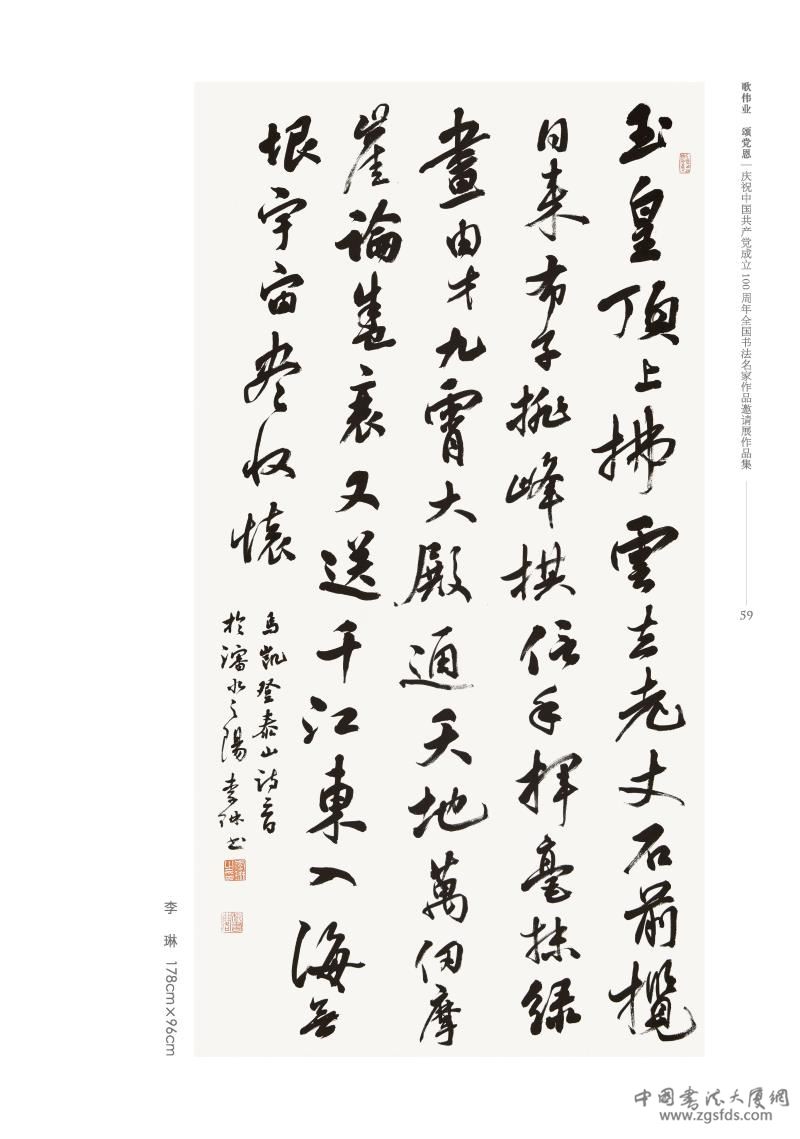 歌伟业 颂党恩 | 庆祝中国共产党成立100周年全国书法名家作品邀请展作品集
59
玉皇頂上拂雲去老丈石前攬
日来布子挑峰棋信手揮毫抹绿
畫由才九霄大殿通天地萬仞摩
崖論盛衰又送千江東入海无
垠宇宙尽收懷
馬凱登泰山詩一首
於潘水之陽 李琳书
李 琳 178cm×96cm
中国書法大厦網
www.zgsfds.com